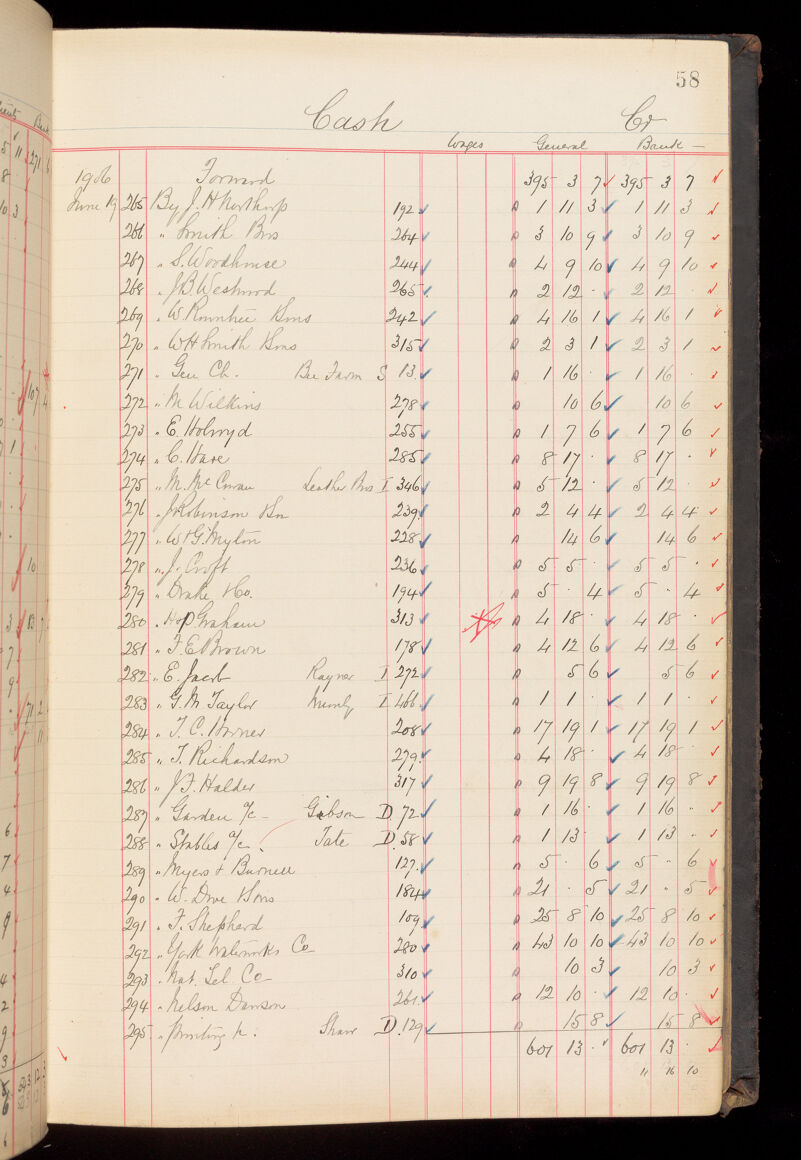 58
Cash Cr
Wages General Bank
1906 Forward 395 3 7 395 3 7
June 19 265 By J. H Northorp 192 1 11 3 1 11 3
266 " Smith Bros 264 3 10 9 3 10 9
267 " S. Woodhouse 244 4 9 10 4 9 10
268 " J B. Westwood 265 2 12 . 2 12 .
269 " W Rowntree & Sons 242 4 16 1 4 16 1
270 " W H Smith & Sons 315 2 3 1 2 3 1
271 " Gen Ch. Bee Farm S 13 1 16 . 1 16 .
272 " M Wilkins 278 10 6 10 6
273 " E. Holroyd 255 1 7 6 1 7 6
274 " C. Hare 285 8 17 . 8 17 .
275 " M. Mc Cowan Leather Bros I 346 5 12 . 5 12 .
276 " J Robinson & Son 239 2 4 4 2 4 4
277 " W & G Myton 228 14 6 14 6
278 " J. Croft 236 5 5 . 5 5 .
279 " Drake & Co. 194 5 . 4 5 . 4
280 " Graham 313 4 18 . 4 18 .
281 " F. E Brown 178 4 12 6 4 12 6
282 " E. Jacob Rayner I 272 5 6 5 6
283 " G. M Taylor Mumby I 466 1 1 . 1 1 .
284 " T. C. Horner 208 17 19 1 17 19 1
285 " T. Richardson 279 4 18 . 4 18
286 " J F. Halder 317 9 19 8 9 19 8
287 " Garden a/c Gibson D 72 1 16 . 1 16 .
288 " Stables a/c Tate D. 58 1 13 . 1 13 .
289 " Myers & Burnell 127 5 . 6 5 . 6
290 " W. Dove & Sons 184 21 . 5 21 . 5
291 " F. Shepherd 109 25 8 10 25 8 10
292 " York Waterworks Co 280 43 10 10 43 10 10
293 " Nat. Tel. Co 310 10 3 10 3
294 " Nelson Dawson 261 12 10 . 12 10 .
295 " Printing Shaw D. 129 15 8 15 8
601 13 . 601 13 .
11 16 10